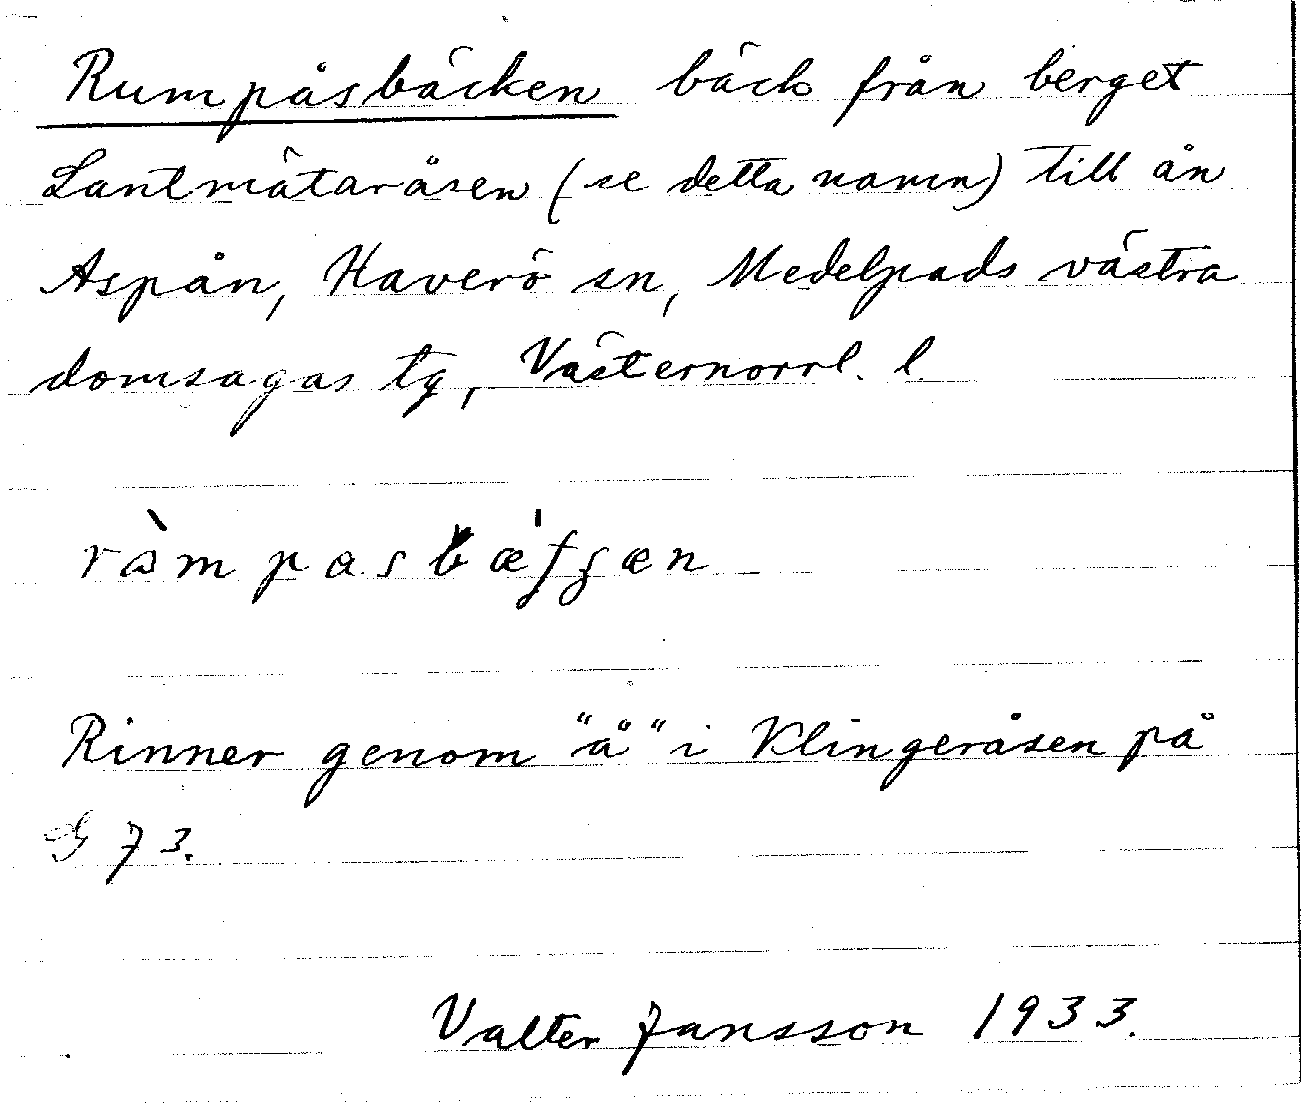 Rumpåsbäcken bäck från berget
Lantmätaråsen (se detta namn) till ån
Aspån, Haverö sn, Medelpads västra
domsagas tg, Västernorrl. l.
Rinner genom "å" i Klingeråsen på
G 73.
Valter Jansson 1933.